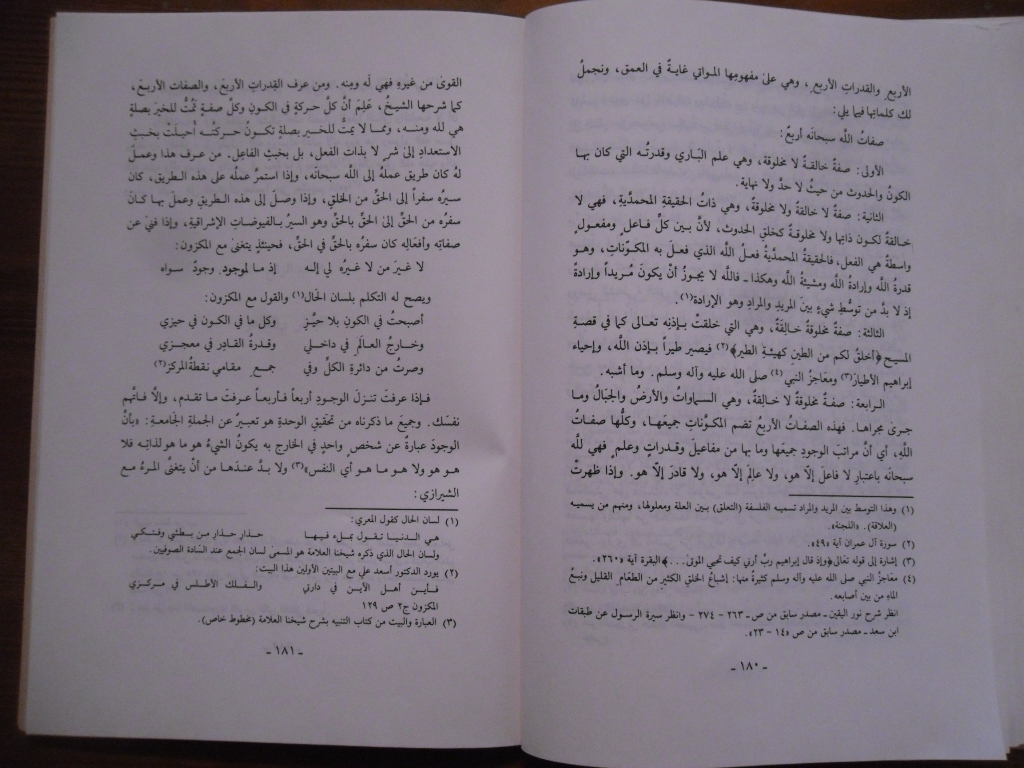 الأربع والقدرات الأربع، وهي على مفهومها المواتي غاية في العمق، ونجمل
لك كلماتها فيما يلي:
صفات الله سبحانه أربع:
الأولى: صفة خالقة لا مخلوقة، وهي علم الباري وقدرته التي كان بها
الكون والحدوث من حيث لا حد ولا نهاية.
الثانية: صفة لا خالقة ولا مخلوقة، وهي ذات الحقيقة المحمدية، فهي لا
خالقة لكون ذاتها ولا مخلوقة كخلق الحدوث، لأن بين كل فاعل ومفعول
واسطة هي الفعل، فالحقيقة المحمدية فعل الله الذي فعل به المكونات، وهو
قدرة الله وإرادة الله ومشيئة الله وهكذا ـ فالله لا يجوز أن يكون مريداً وإرادة
إذ لا بد من توسط شيء بين المريد والمراد وهو الإرادة(١).
الثالثة: صفة مخلوقة خالقة، وهي التي خلقت بإذنه تعالى كما في قصة
المسيح ﴿أخلق لكم من الطين كهيئة الطير﴾(٢) فيصير طيراً بإذن الله، وإحياء
إبراهيم الأطيار(٣) ومعاجز النبي (٤) صلى الله عليه وآله وسلم. وما أشبه.
الرابعة: صفة مخلوقة لا خالقة، وهي السماوات والأرض والجبال وما
جرى مجراها. فهذه الصفات الأربع تضم المكونات جميعها، وكلها صفات
الله، أي أن مراتب الوجود جميعها وما بها من مفاعيل وقدرات وعلم فهي لله
سبحانه باعتبار لا فاعل إلا هو، ولا عالم إلا هو، ولا قادر إلا هو. وإذا ظهرت
(١) وهذا التوسط بين المريد والمراد تسميه الفلسفة (التعلق) بين العلة ومعلولها، ومنهم من يسميه
(العلاقة). «اللجنة».
(٢) سورة آل عمران آية «٤٩».
(٣) إشارة إلى قوله تعالى ﴿وإذ قال إبراهيم رب أرني كيف تحيي الموتى ...﴾ البقرة آية «٢٦٠».
(٤) معاجز النبي صلى الله عليه وآله وسلم كثيرة منها: إشباع الخلق الكثير من الطعام القليل ونبع
الماء من بين أصابعه.
انظر شرح نور اليقين ـ مصدر سابق من ص ـ ٢٦٣ - ٢٧٤ - وانظر سيرة الرسول عن طبقات
ابن سعد ـ مصدر سابق من ص «١٤ - ٢٣».
- ١٨٠ -
القوى من غيره فهي له ومنه. ومن عرف القدرات الأربع، والصفات الأربع،
كما شرحها الشيخ، علم أن كل حركة في الكون وكل صفة تمت للخير بصلة
هي لله ومنه، وما لا يمت للخير بصلة تكون حركته أحيلت بخبث
الاستعداد إلى شر لا بذات الفعل، بل بخبث الفاعل. من عرف هذا وعمل
له كان طريق عمله إلى الله سبحانه، وإذا استمر عمله على هذه الطريق، كان
سيره سفراً إلى الحق من الخلق، وإذا وصل إلى هذه الطريق وعمل بها كان
سفره من الحق إلى الحق بالحق وهو السير بالفيوضات الإشراقية، وإذا فني عن
صفاته وأفعاله كان سفره بالحق في الحق، فحينئذ يتغنى مع المكزون:
لا غير من لا غيره لي إله إذ ما لموجود وجود سواه
ويصح له التكلم بلسان الحال(١) والقول مع المكزون:
أصبحت في الكون بلا حيز وكل ما في الكون في حيزي
وخارج العالم في داخلي وقدرة القادر في معجزي
وصرت من دائرة الكل وفي جمع مقامي نقطة المركز(٢)
فإذا عرفت تنزل الوجود أربعاً فأربعاً عرفت ما تقدم، وإلا فاتهم
نفسك. وجميع ما ذكرناه من تحقيق الوحدة هو تعبير عن الجملة الجامعة: «بأن
الوجود عبارة عن شخص واحد في الخارج به يكون الشيء هو ما هو لذاته فلا
هو هو ولا هو ما هو أي النفس»(٣) ولا بد عندها من أن يتغنى المرء مع
الشيرازي:
(١) لسان الحال كقول المعري:
هي الدنيا تقول بملء فيها حذار حذار من بطشي وفتكي
ولسان الحال الذي ذكره شيخنا العلامة هو المسمى لسان الجمع عند السادة الصوفيين.
(٢) يورد الدكتور أسعد علي مع البيتين الأولين هذا البيت:
فأين أهل الأين في دارتي والفلك الأطلس في مركزي
المكزون ج٢ ص ١٢٩
(٣) العبارة والبيت من كتاب التنبيه بشرح شيخنا العلامة (مخطوط خاص).
- ١٨١ -